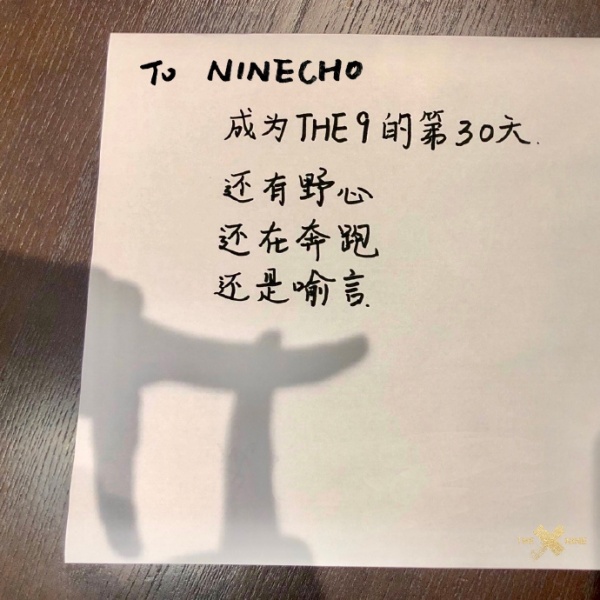 To NINECHO
成为THE9的第30天.
还有野心
还在奔跑
还是喻言.